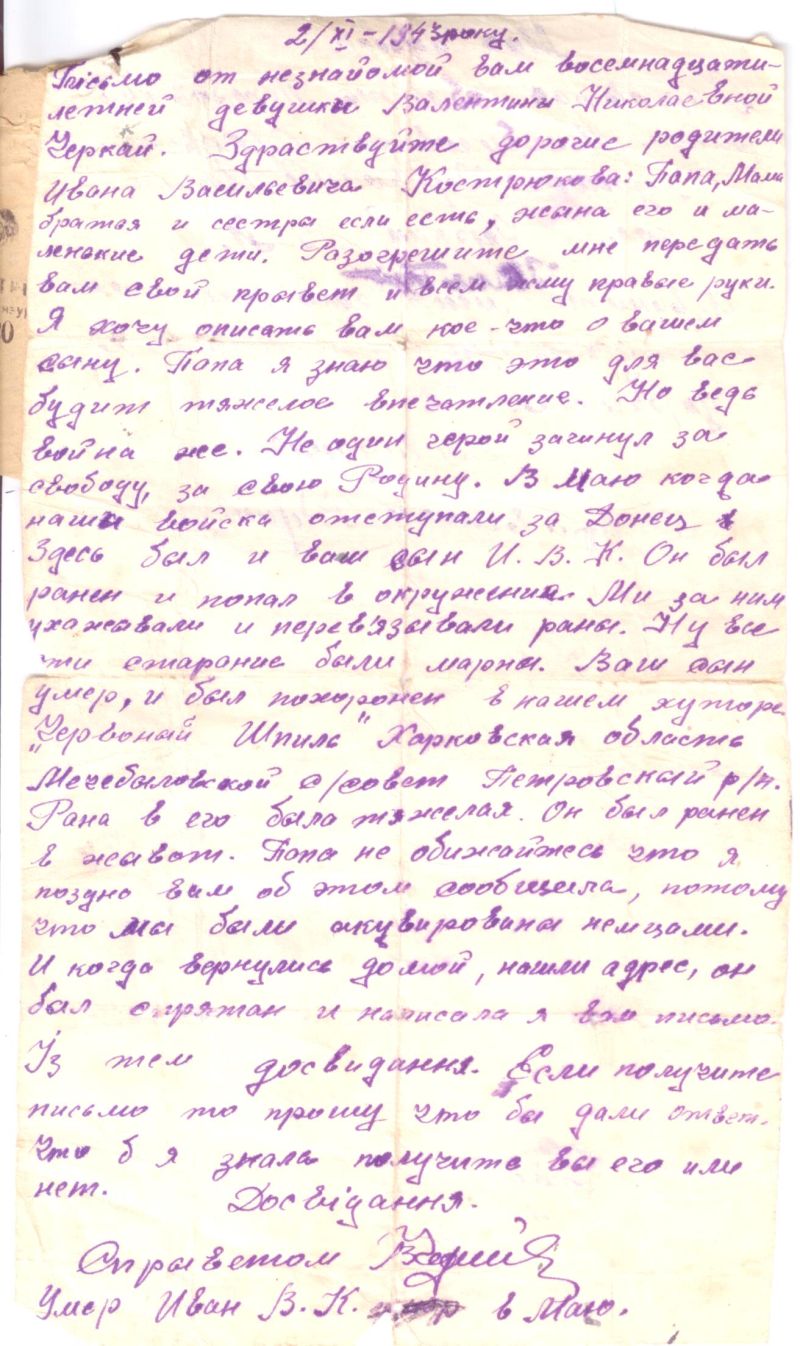 2/XI – 1943 року.
Письмо от незнайомой вам восемнадцати-
летней девушки Валентины Николаевной
Черкай. Здраствуйте дорогие родители
Ивана Васильевича Кострюкова: Папа, Мама
братья и сестры если есть, жына его и ма-
ленькие дети. Разогрешите мне передать
вам свой прывет и всем жму правые руки.
Я хочу описать вам кое-что о вашем
сыну. Папа я знаю что это для вас
будит тяжелое впечатление. Но ведь
война же. Не один герой загинул за
свободу, за свою Родину. В Маю когда
наши войска отступали за Донец
Здесь был и ваш сын И. В. К. Он был
ранен и попал в окружение. Ми за ним
ухажывали и перев'язывали раны. Ну все
эти старание были марны. Ваш сын
умер, и был похоронен в нашем хуторе
„Червоний Шпиль" Харковская область
Мечебыловской с/совет Петровский р/н.
Рана в его была тяжелая. Он был ранен
в жывот. Папа не обижайтесь что я
поздно вам об этом сообщила, потому
что мы были акувированы немцами.
И когда вернулись домой, нашли адрес, он
был спрятан и написала я вам письмо.
Із тем досвидання. Если получите
письмо то прошу что бы дали ответ.
Что б я знала получите вы его или
нет. Досвідання.
Спрыветом
Умер Иван В. К. в Маю.